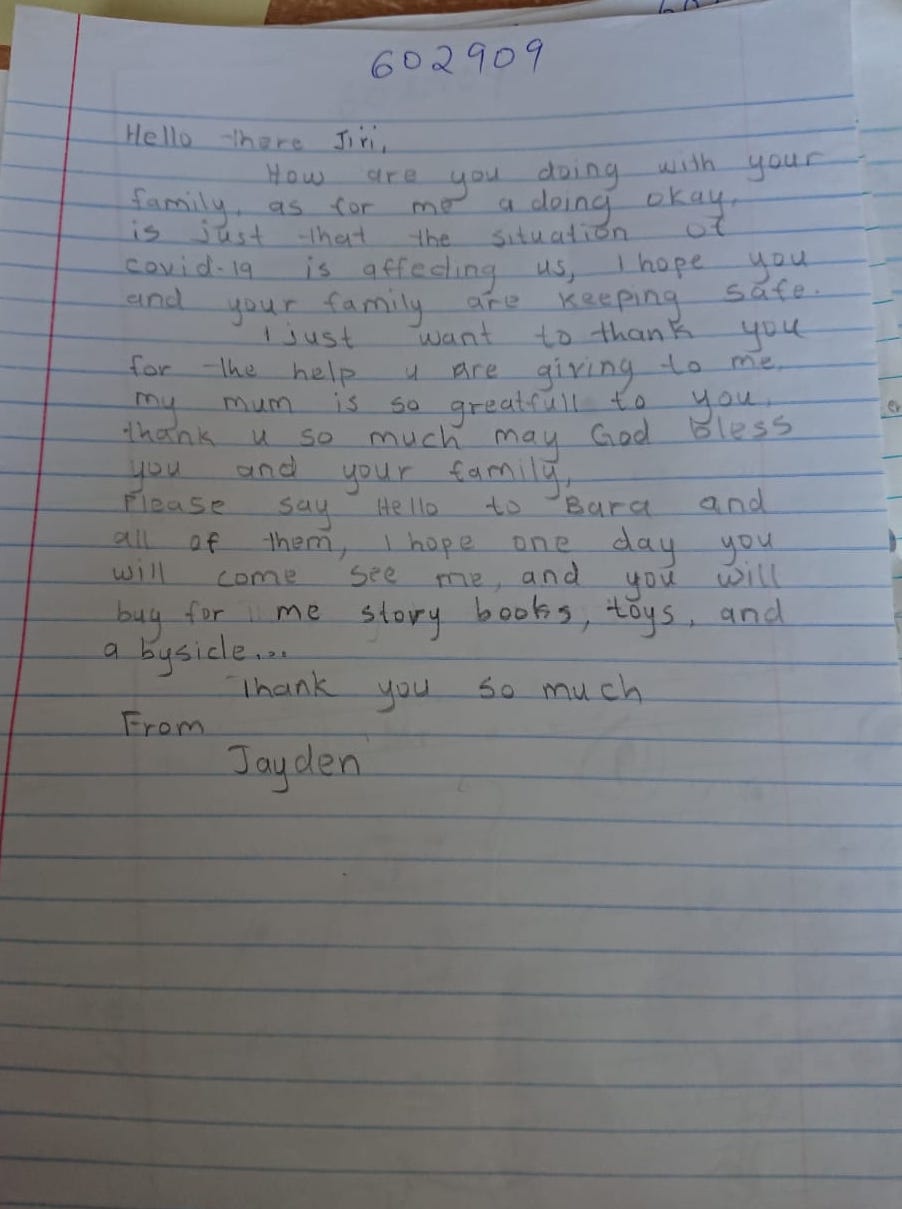 602909
Hello there Jiri,
How are you doing with your
family, as for me a doing okay,
is just that the situation of
covid-19 is affecting us, I hope you
and your family are keeping safe.
I just want to thank you
for the help u are giving to me,
my mum is so greatfull to you,
thank u so much may God Bless
you and your family,
Please say Hello to Bara and
all of them, I hope one day you
will come see me, and you will
buy for me story books, toys, and
a bysicle...
Thank you so much
From
Jayden